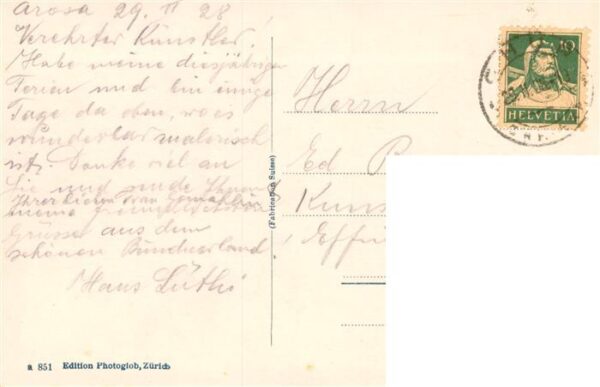 Arosa 29. II 28
Verehrter Künstler!
Habe meine diesjährigen
Ferien und bin einige
Tage da oben, wo es
wunderbar malerisch
ist. Danke viel an
Sie und sende Ihnen
Ihrer lieben Frau Gemahlin
meine
Grüsse aus dem
schönen Bündnerland
Hans Lüthi
(Fabrication Suisse)
10
HELVETIA
Herrn
Ed
Kuns
Effi
a 851 Edition Photoglob, Zürich